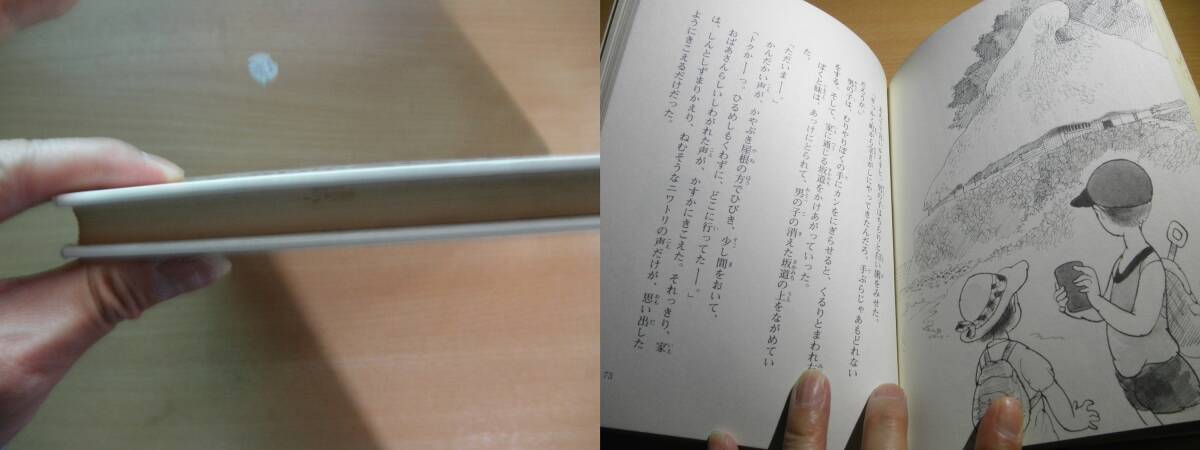 男の子は、むりやりぼくの手にカンをにぎらせると、くるりとまわれ
をする。そして、家に通じる坂道をかけあがっていった。
ぼくと妹は、あっけにとられて、男の子の消えた坂道の上をながめてい
た。
「ただいまーー」
かんだかい声が、かやぶき屋根の方でひびき、少し間をおいて、
「トクかーーっ。ひるめしもくわずに、どこに行ってたーー。」
おばあさんらしいしわがれた声が、かすかにきこえた。それっきり、家
は、しんとしずまりかえり、ねむそうなニワトリの声だけが、思い出した
ようにきこえるだけだった。
73